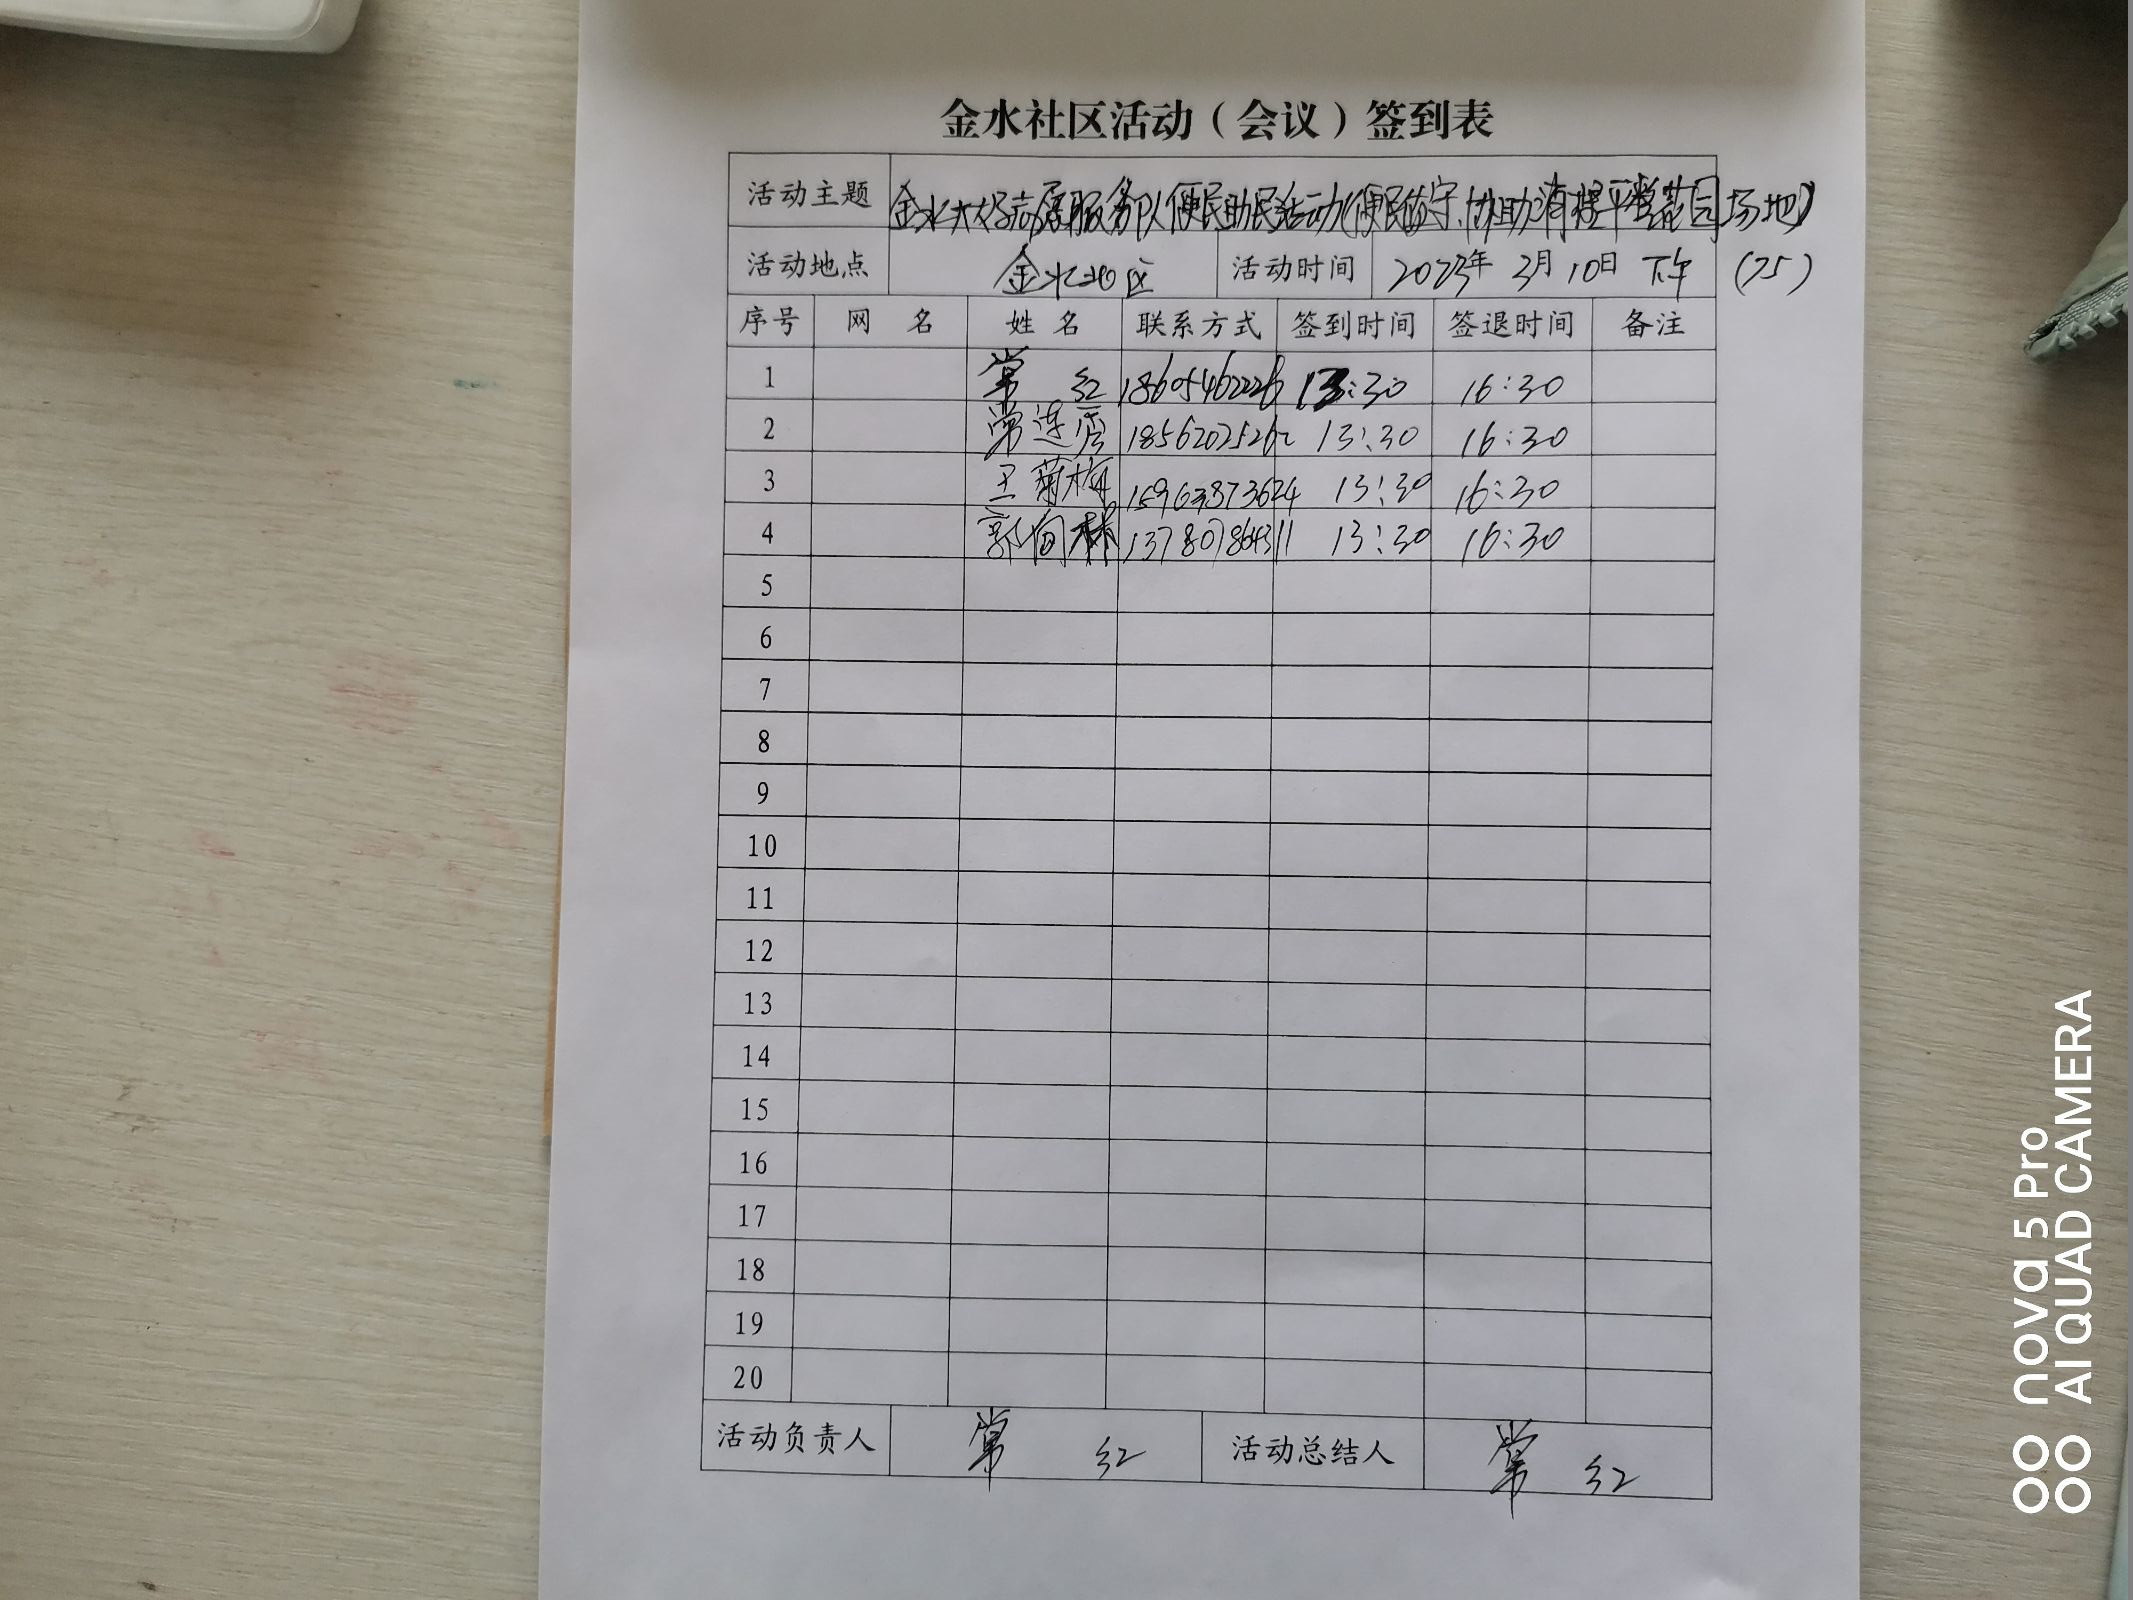 金水社区活动（会议）签到表
活动主题 金水大好志愿服务队便民助民活动(便民值守、协助清理平整花园场地)
活动地点 金水北区 活动时间 2023年 3月10日 下午 (75)
序号 网 名 姓 名 联系方式 签到时间 签退时间 备注
1 常 红 18605462226 13:30 16:30
2 常连秀 18562025262 13:30 16:30
3 王菊梅 15963873624 13:30 16:30
4 郭向林 13780786431 13:30 16:30
5
6
7
8
9
10
11
12
13
14
15
16
17
18
19
20
活动负责人 常 红 活动总结人 常 红
nova 5 Pro
AI QUAD CAMERA